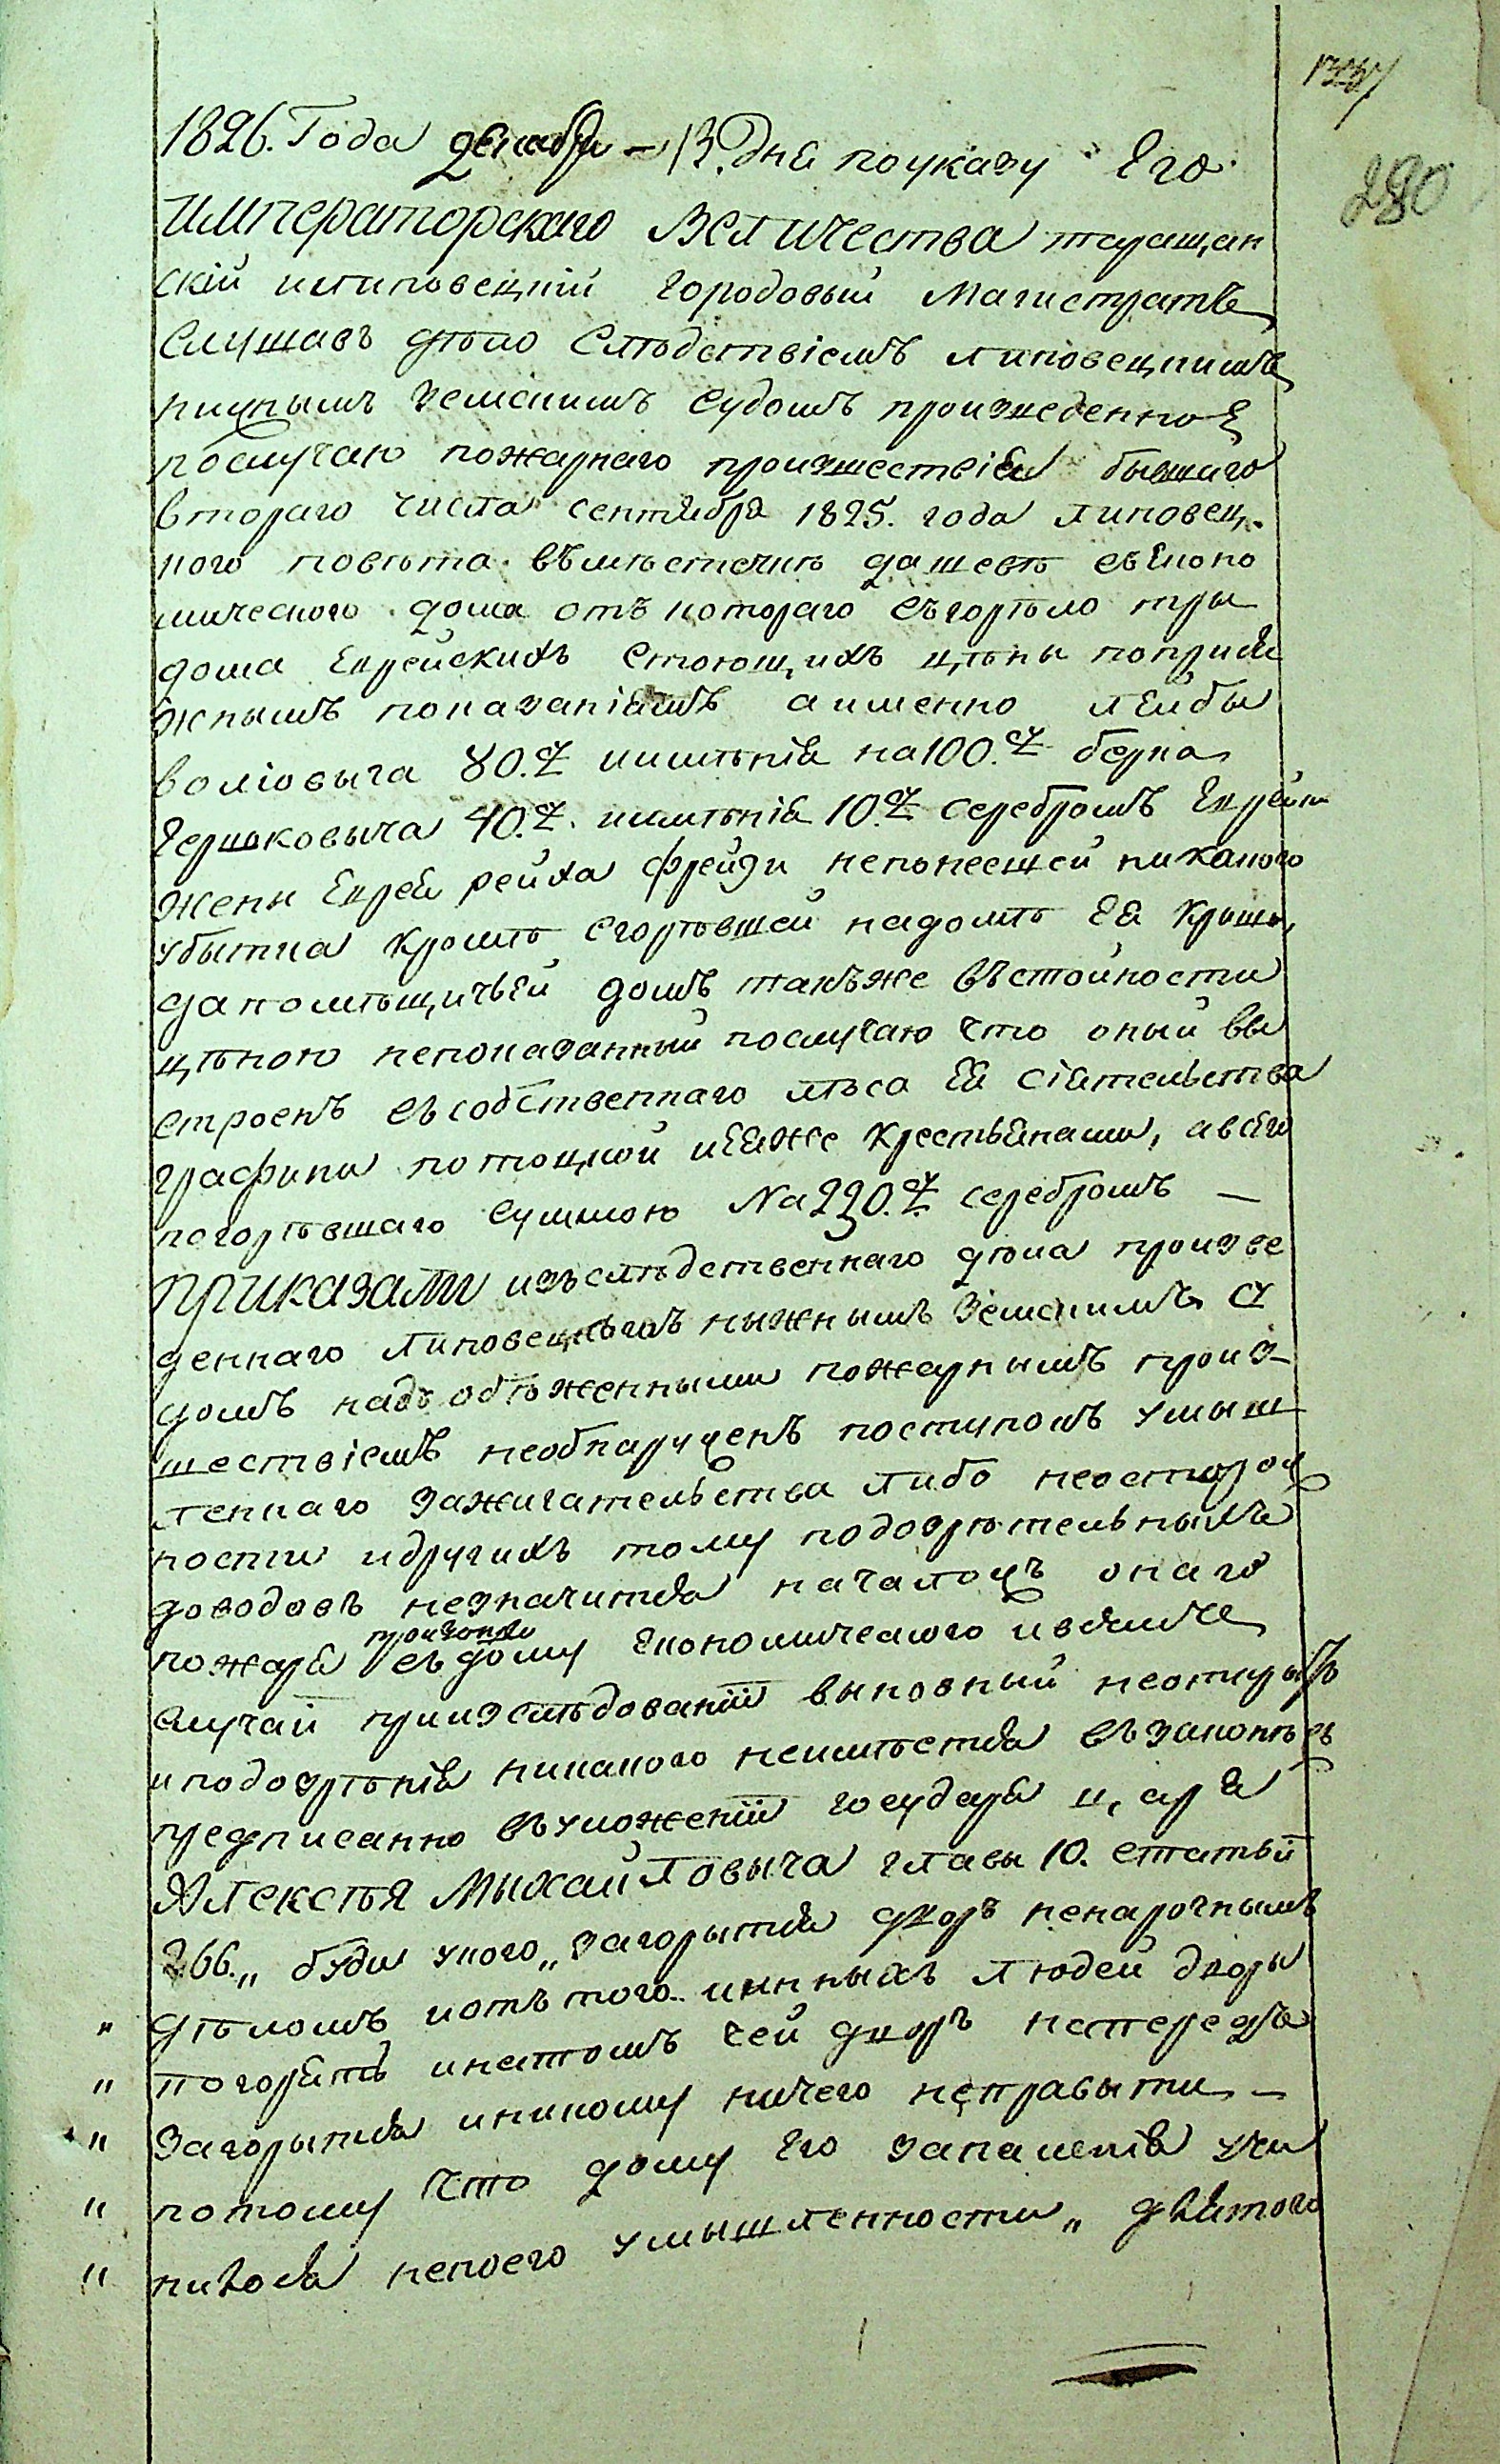 1337
280
1826. Года декабря – 13. дня поуказу Его
ИМПЕРАТОРСКАГО Величества таращан
скій илиповецкій городовый Магистратъ
Слушавъ дѣло Слѣдствіемъ липовецкимъ
нижнымъ Земскимъ Судомъ произведенное
послучаю пожарнаго произшествія бывшаго
втораго числа сентября 1825. года липовец
кого повѣта вЪмѣстечкѣ дашевѣ сЪеконо
мическото дома отЪ котораго сЪгорѣло тры
дома Еврейскихъ стоющихъ цѣны поприся
жнымъ показаніямъ аименно лейбы
воліовыча 80. иимѣнія на 100. берка
Гершковыча 40. иимѣнія 10. серебромъ Еврейки
жены Еврея рейха Фрейди непонесшей никакого
убытка кромѣ сгорѣвшей надомѣ ея крыши,
да помѣщичьей домъ такъже вЪстойности
цѣною непоказанный послучаю что оный вы
строенъ сЪсобственнаго лѣса ея сіятельства
графини потоцкой иеяже крестьянами, авсего
погорѣвшаго суммою На 230. серебромъ —
приказали изъслѣдственнаго дѣла произве
деннаго липовецкымъ ныжнымъ Земскимъ су
домъ надъ обѣженными пожарнымъ произ
шествіемъ необнаружень поступокъ умыш
леннаго зажигательства либо неосторож
ности идругихъ тому подозрѣтельныхъ
доводовъ незначится началомъ онаго
пожаря сЪдому економического ивсямъ
случай приизслѣдованіи выновный неоткрытъ
иподозрѣнія никакого неимѣется вЪзаконѣхъ
предписанно вЪуложеніи государя царя
Алексѣя Михайловыча главы 10. статьи
266. „ буди укого „ загорытся дворъ ненарочнымъ
„ дѣломъ иотъ того инныхъ людей дворы
„ погорятъ инатомъ чей дворъ напередъ
„ загорытся иникому ничего неправыти –
„ потому что дому Его запаленія учи
„ нилося непоего умышленности „ длятого